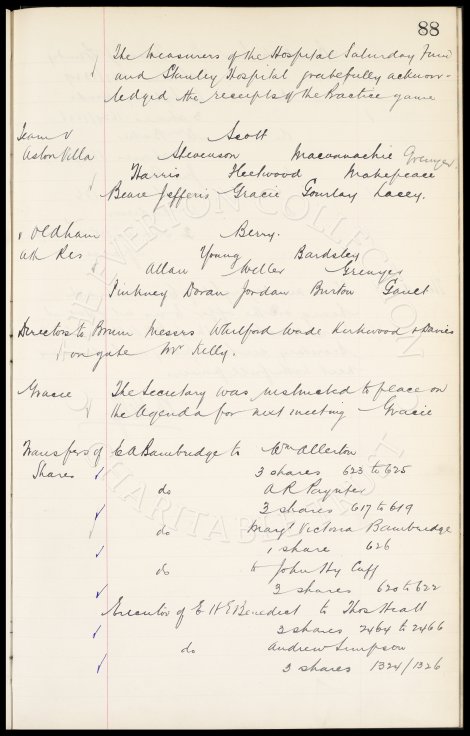 88
The treasurers of the Hospital Saturday Fund
and Stanley Hospital gratefully acknow-
ledged the receipts of the Practice game
Team v Scott
Aston Villa Stevenson Maconnachie Grenyer
Harris Fleetwood Makepeace
Beare Jefferis Gracie Gourlay Lacey.
v Oldham Berry.
ath Res Young Bardsley
Allan Weller Grenyer
Pinkney Doran Jordan Burton Gault
Directors to Brum Messrs Whitford Wade Kirkwood & Davies
on gate Mr Kelly.
Gracie The Secretary was instructed to place on
the Agenda for next meeting Gracie
Transfers of C A Bainbridge to Wm Allerton
Shares 3 shares 623 to 625
do A R Paynter
3 shares 617 to 619
do Margt Victoria Bainbridge
1 share 626
do to John Hy Cuff
3 shares 620 to 622
Executor of E H E Benedict to Thos Heatt
3 shares 2464 to 2466
do Andrew Simpson
3 shares 1324/1326
THE EVERTON COLLECTION
CHARITABLE TRUST